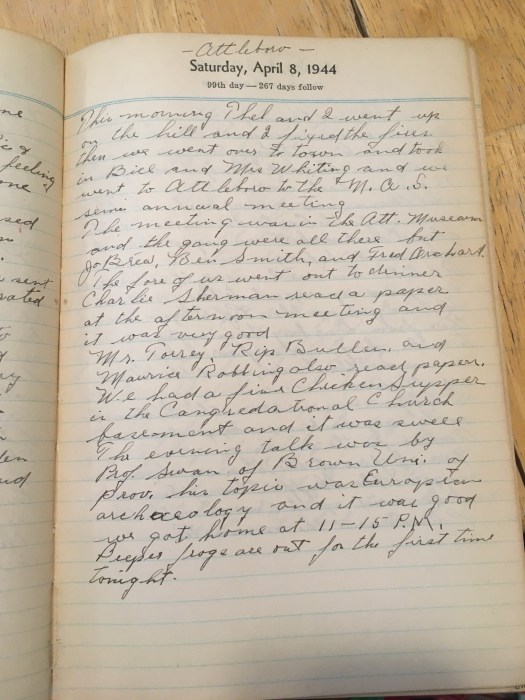 one
of
feeling
one
sed
sent
vated
- Attleboro -
Saturday, April 8, 1944
99th day — 267 days follow
This morning Thel and I went up
on the hill and I fixed the fires
then we went over to town and took
in Bill and Mrs Whiting and we
went to Attleboro to the M. A. S.
semi annual meeting
The meeting was in the Att. Museum
and the gang were all there but
Jo Bred, Ben Smith, and Fred Orchard.
The fore of us went out to dinner
Charlie Sherman read a paper
at the afternoon meeting and
it was very good
Mr. Torrey, Rip Bullen, and
Maurice Robbing also read paper.
We had a fine Chicken Supper
in the Congredational Church
basement and it was swell
The evening talk was by
Prof. Swan of Brown Uni. of
Prov. his topic was European
archaeology and it was good
we got home at 11-15 P.M.
Peeper frogs are out for the first time
tonight.